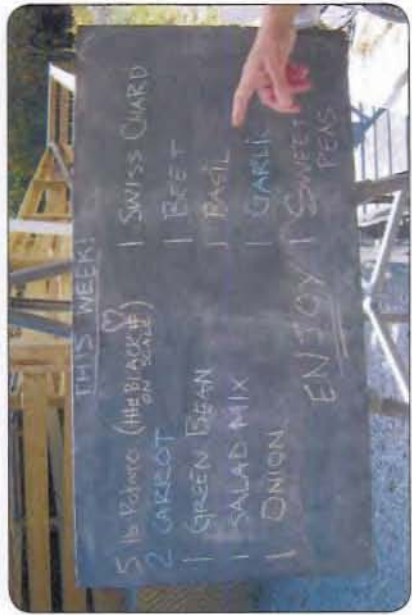 THIS WEEK!
5 lb Potato (the BLACK #
ON SCALE)
2 CARROT
1 GREEN BEAN
1 SALAD MIX
1 ONION
1 SWISS CHARD
1 BEET
1 BASIL
1 GARLIC
1 SWEET
PEAS
ENJOY